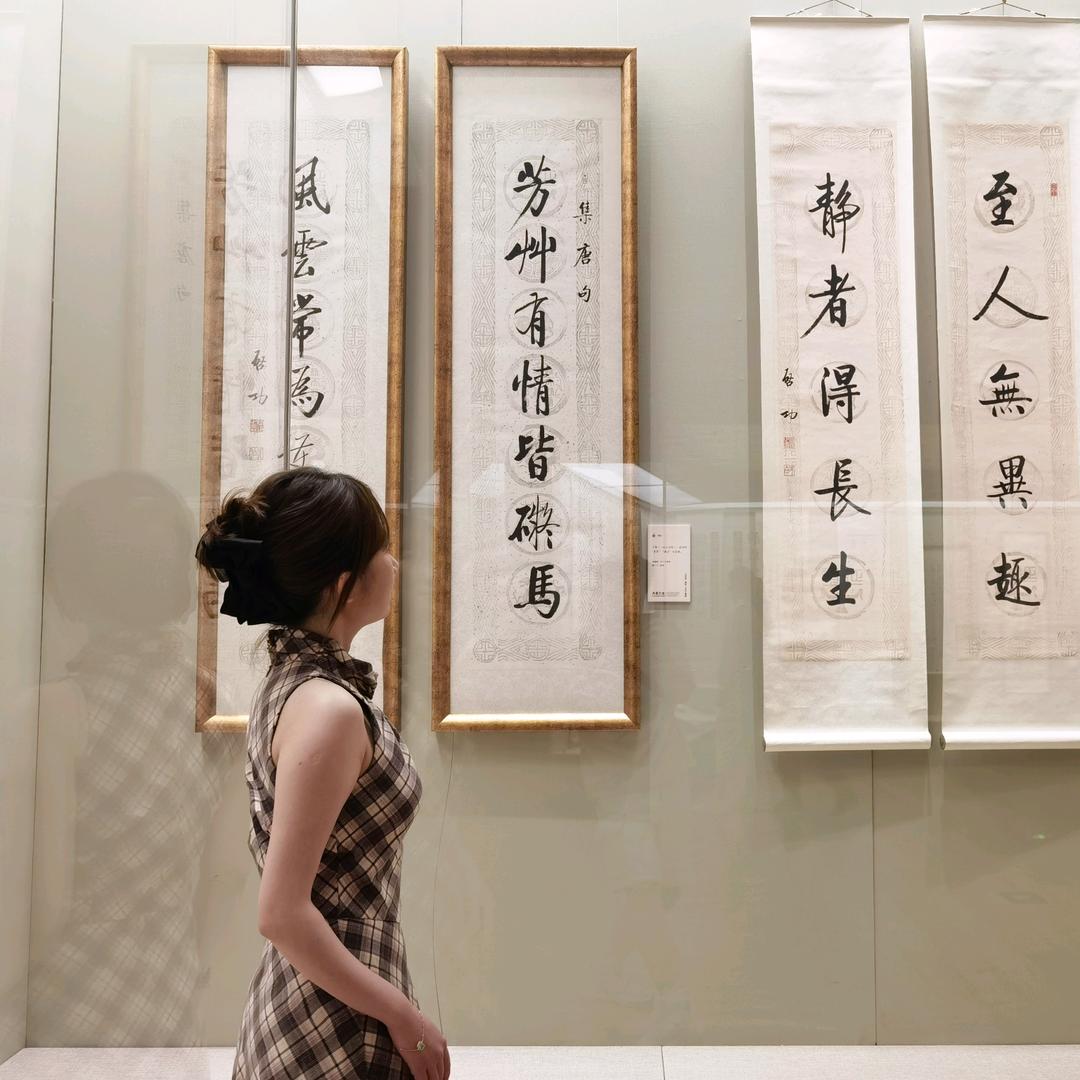 至人無異趣
静者得長生
啓功
集唐句
芳艸有情皆礙馬
風雲常為
啓功